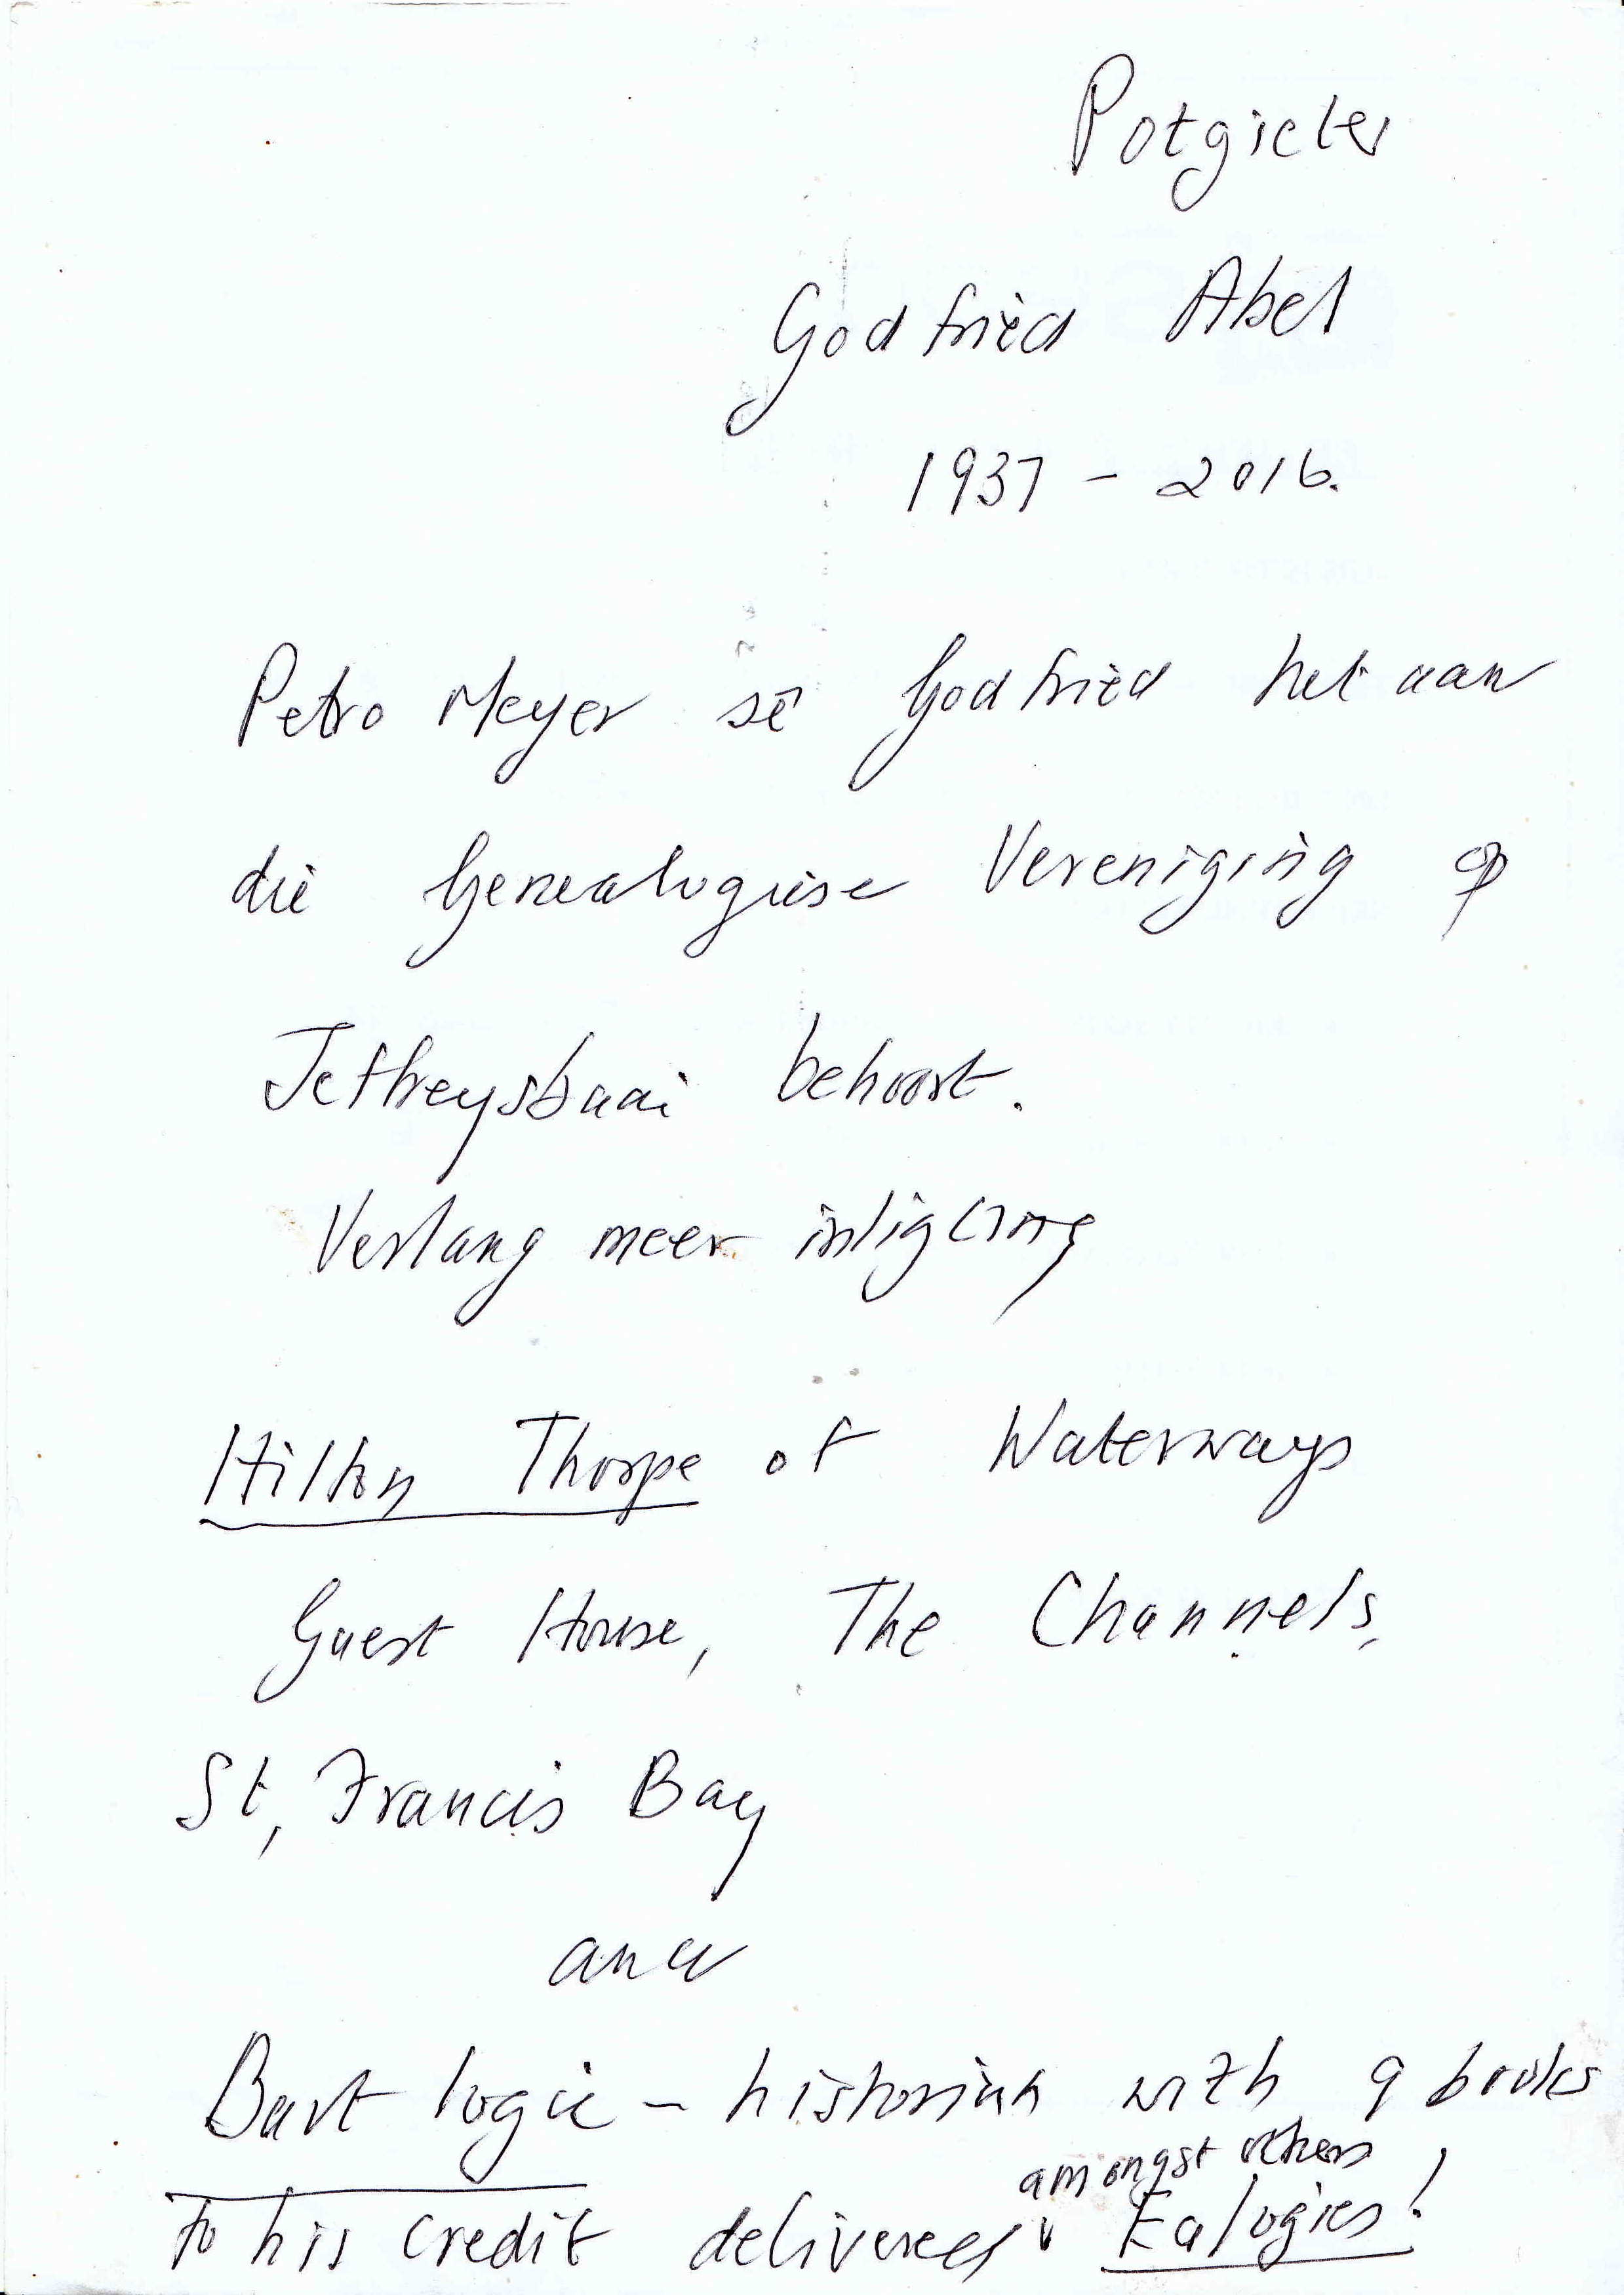 Potgieter
Godfried Abel
1937 - 2016.
Petro Meyer sê Godfried het aan
die Genealogiese Vereniging op
Jeffreysbaai behoort.
Verlang meer inligting
Hilton Thorpe of Waterways
Guest House, The Channels,
St, Francis Bay
and
Bart logie - historian with 9 books
amongst others
to his credit delivered Ealogies!